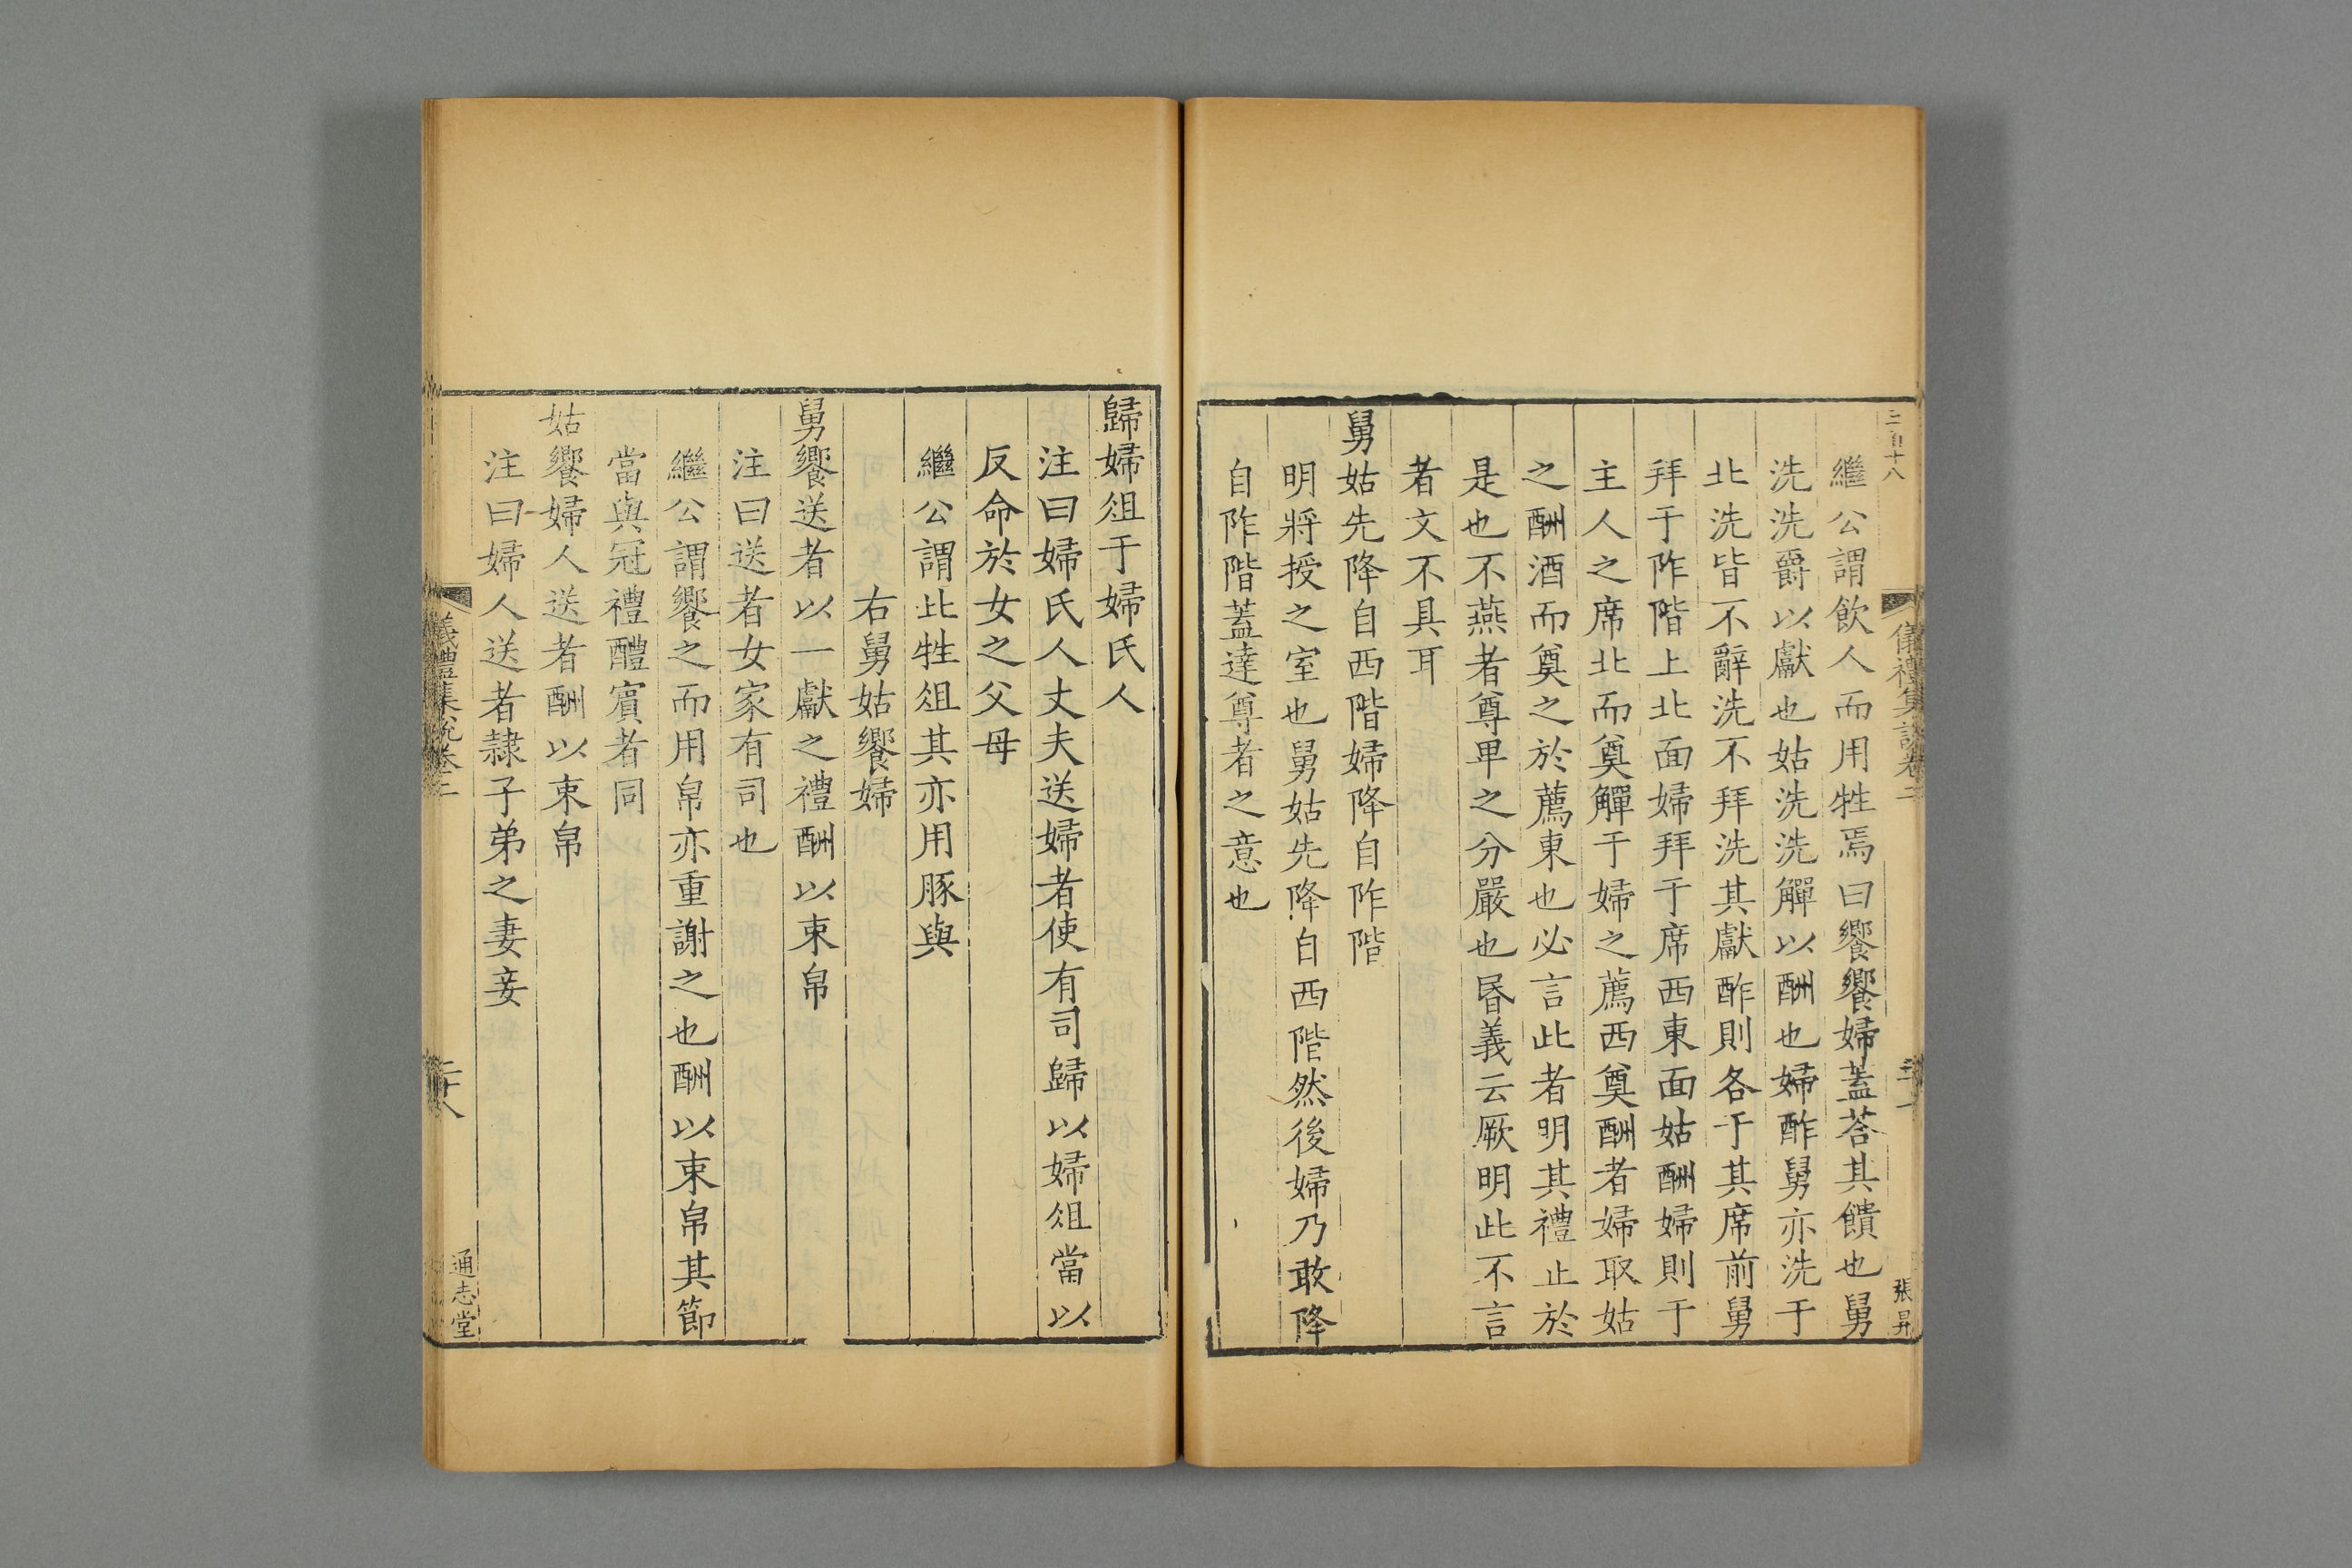 繼公謂飲人而用牲焉曰饗饗婦蓋荅其饋也舅
洗洗爵以獻也姑洗洗觶以酬也婦酢舅亦洗于
北洗皆不辭洗不拜洗其獻酢則各于其席前舅
拜于阼階上北面婦拜于席西東面姑酬婦則于
主人之席北而奠觶于婦之薦西奠酬者婦取姑
之酬酒而奠之於薦東也必言此者明其禮止於
是也不燕者尊卑之分嚴也昏義云厥明此不言
者文不具耳
舅姑先降自西階婦降自阼階
明將授之室也舅姑先降自西階然後婦乃敢降
自阼階蓋達尊者之意也
張昇
歸婦俎于婦氏人
注曰婦氏人丈夫送婦者使有司歸以婦俎當以
反命於女之父母
繼公謂此牲俎其亦用豚與
右舅姑饗婦
舅饗送者以一獻之禮酬以束帛
注曰送者女家有司也
繼公謂饗之而用帛亦重謝之也酬以束帛其節
當與冠禮醴賓者同
姑饗婦人送者酬以束帛
注曰婦人送者隸子弟之妻妾
儀禮集說卷二
二十八
通志堂